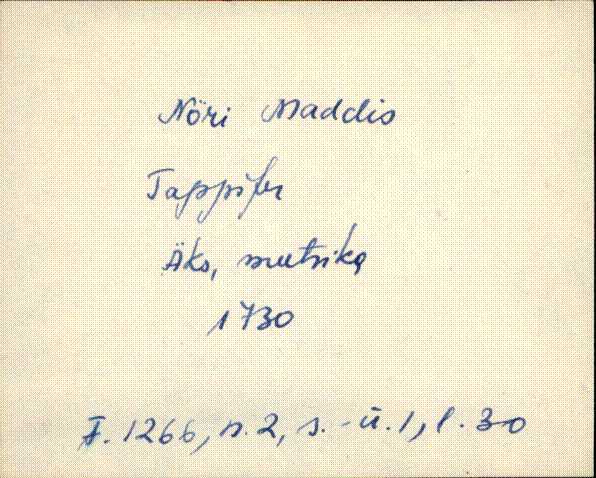 Nöri Maddis
Tappifer
Äks, meetrika
1730
F. 1266, n. 2, s.-ü. 1, l. 30